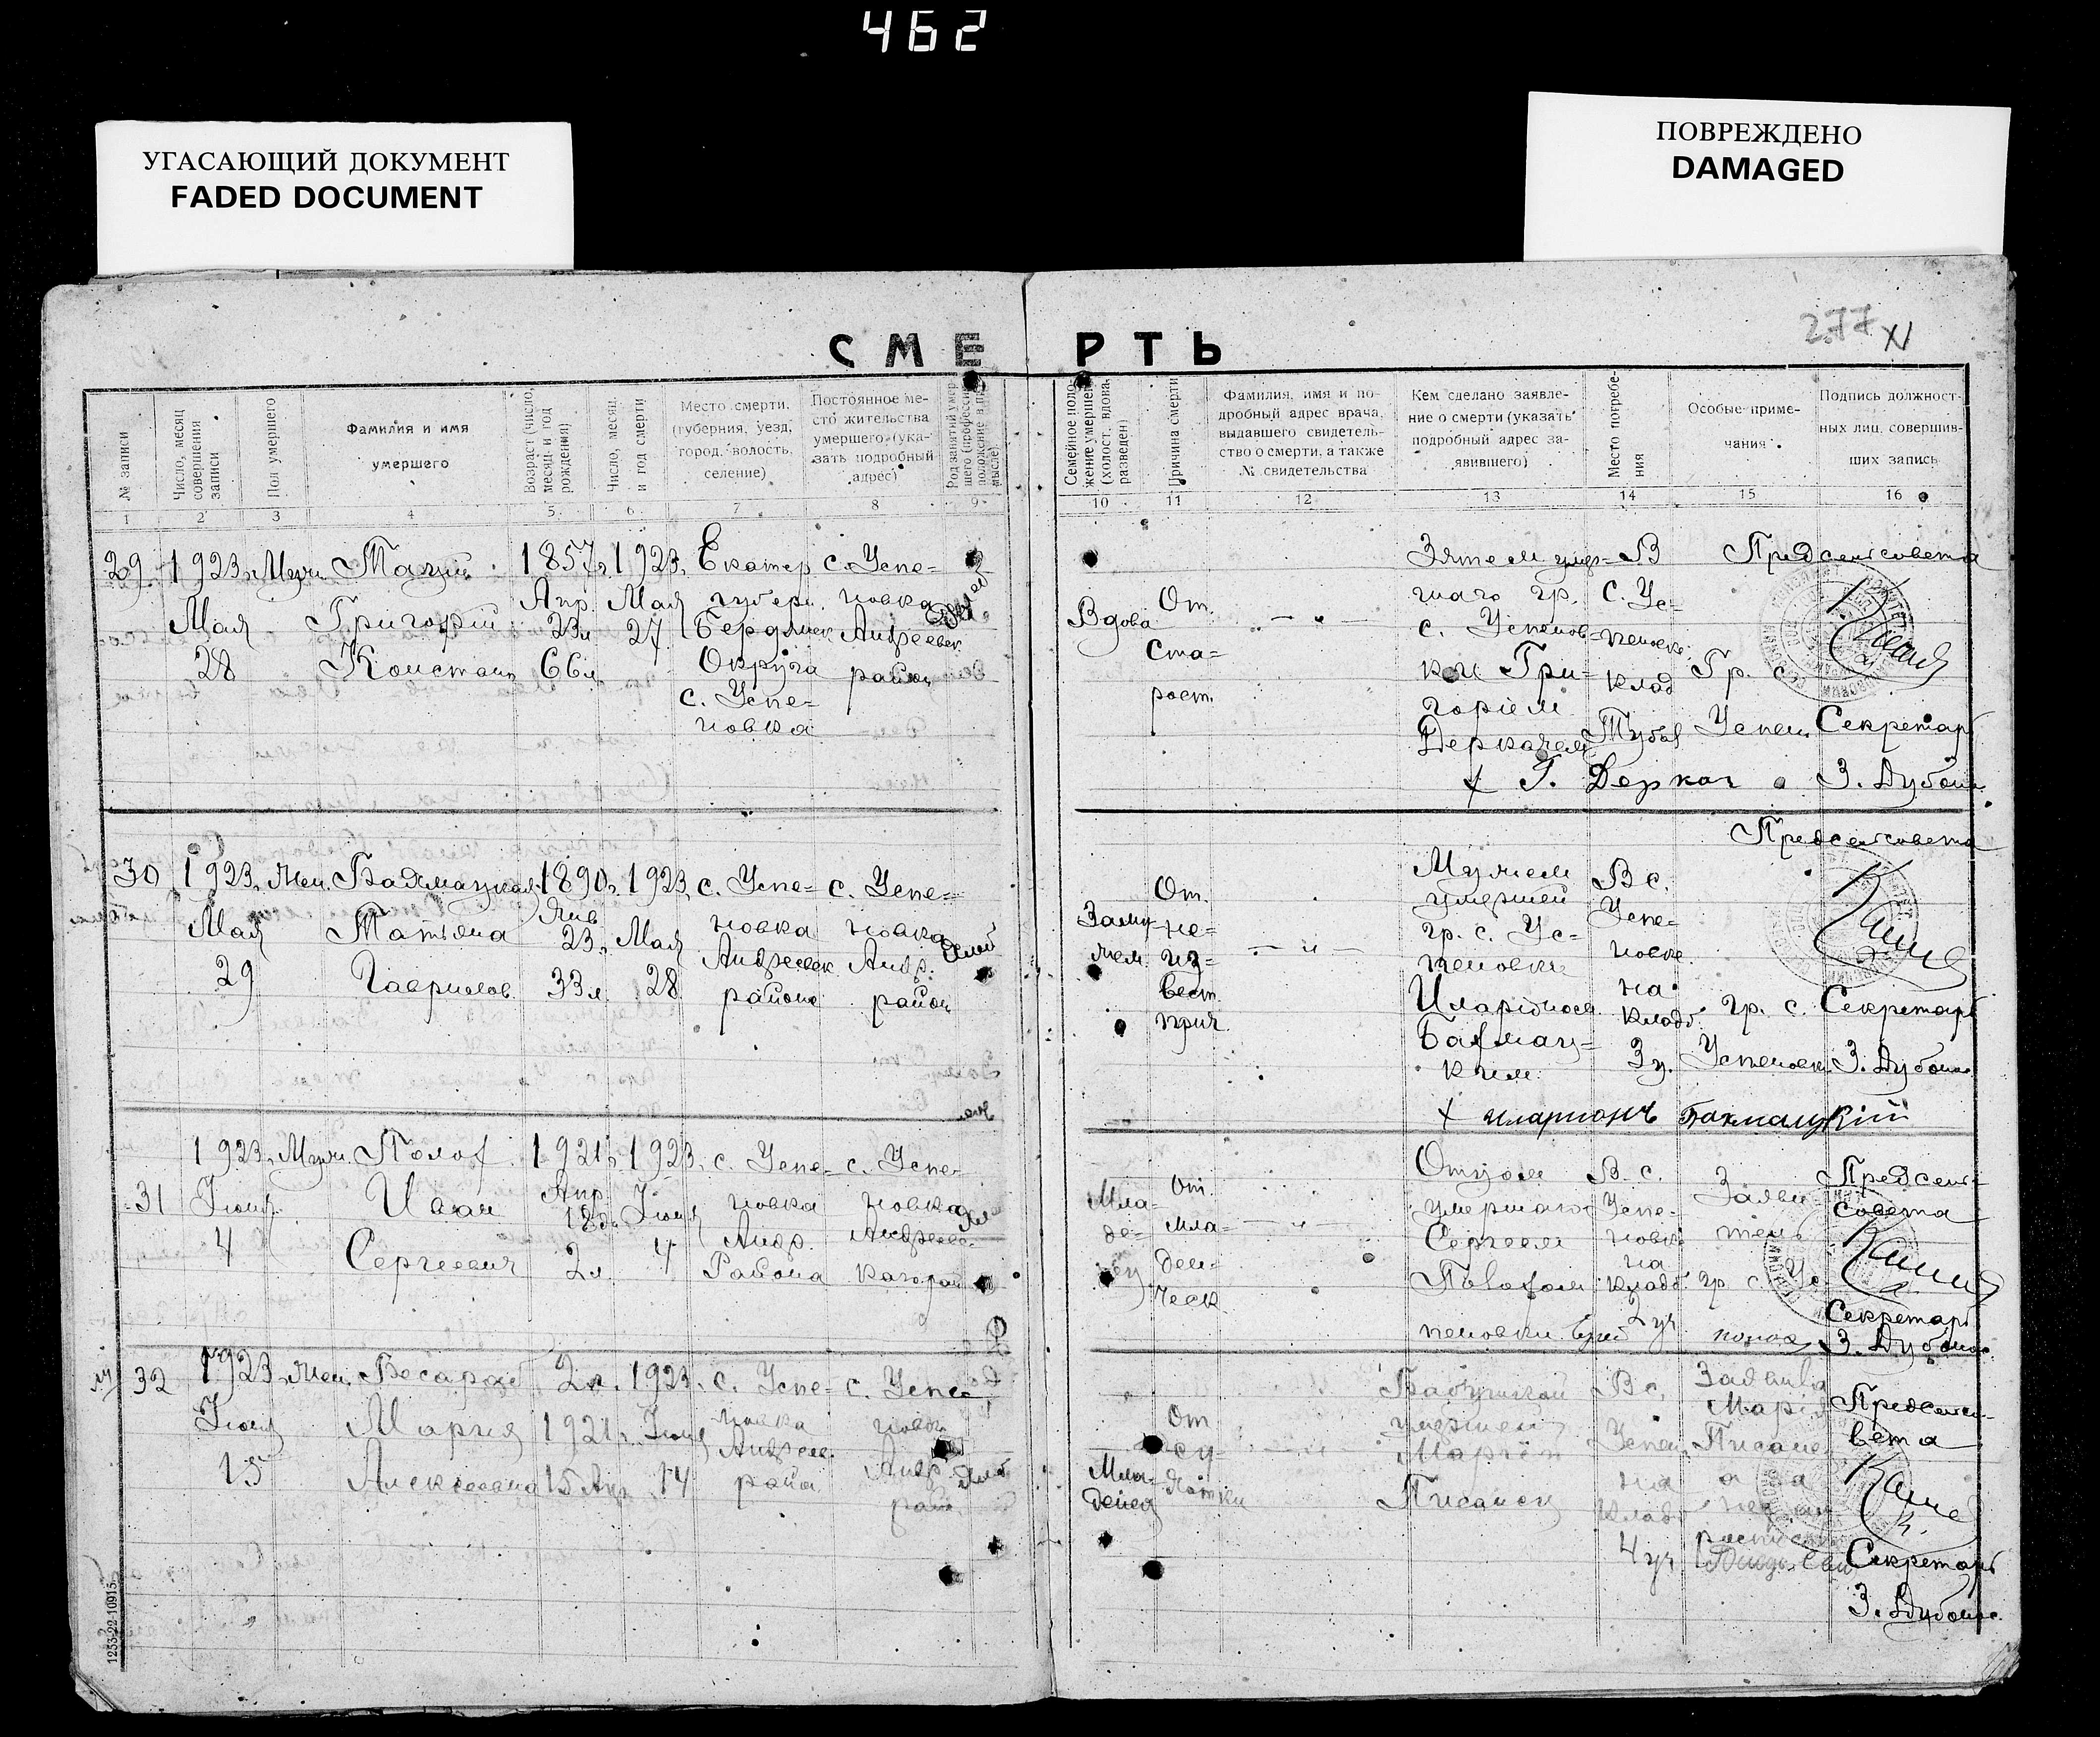 462
УГАСАЮЩИЙ ДОКУМЕНТ
FADED DOCUMENT
ПОВРЕЖДЕНО
DAMAGED
277
СМЕРТЬ
№ записи
Число, месяц совершения записи
Пол умершего
Фамилия и имя
умершего
Возраст (число, месяц и год рождения)
Число, месяц и год смерти
Место смерти,
(губерния, уезд,
город, волость,
селение)
Постоянное ме-
сто жительства
умершего (ука-
зать подробный
адрес)
Род занятий умер-
шего (профессия,
положение в про-
мысле)
Семейное поло-
жение умершего
(холост, вдова,
разведен)
Причина смерти
Фамилия, имя и по-
дробный адрес врача,
выдавшего свидетель-
ство о смерти, а также
№ свидетельства
Кем сделано заявле-
ние о смерти (указать
подробный адрес за-
явившего)
Место погребе-
ния
Особые приме-
чания
Подпись должност-
ных лиц, совершив-
ших запись
1 2 3 4 5 6 7 8 9 10 11 12 13 14 15 16
29
1923г.
Мая
28
Муж.
Григорий
Констан
1857г.
Апр.
23д
66л
1923г.
Мая
27
Екатер
губерн.
Бердянск
Округа
с. Успе-
новка
с. Успе-
новка
Андреевск.
район
Вдова
От
ста-
рост.
— " —
Зятем умер-
шаго гр.
с. Успенов-
ки Гри-
горіем
Деркачем
В
с. Ус-
пеновк.
клад
Гр. с.
Успен.
Предсельсовета
Секретарь
З. Дубов
+ Г. Деркач
30
1923г.
Мая
29
Жен.
Бахмацкая
Татьяна
Гаврилов.
1890г.
Янв
23д
33л
1923г.
Мая
28
с. Успе-
новка
Андреевск.
района
с. Успе-
новка
Андр.
район
Заму-
жем
От
не-
из-
вест.
прич.
— " —
Мужем
умершей
гр. с. Ус-
пеновки
Иларіоном
Бахмац-
ким
В с.
Успе-
новке
на
кладб.
3 у.
гр. с.
Успеновки
Предсельсовета
Секретарь
З. Дубов
+ иларионъ Бахмацкій
31
1923г.
Июня
4
Муж.
Полох
Иван
Сергеевич
1921г.
Апр.
18д.
2л
1923г.
Июня
4
с. Успе-
новка
Андр.
Района
с. Успе-
новка
Андреевс-
каго рай
Мла-
де-
нец
От
мла-
ден-
ческ.
— " —
Отцом
умершаго
Сергеем
Полохом
В с.
Успе-
новк.
на
кладб.
2 уч
Заяви-
тель
гр. с. Ус-
пеновки
полох
Предсель-
совета
Секретарь
З. Дубов
32
1923г.
Июня
15
Жен.
Бесараб
Мария
Алексеевна
2л.
1921г.
15 Апр
1923г.
Июня
14
с. Успе-
новка
Андреев.
района
с. Успе-
новка
Андр.
райн.
Мла-
денец
От
су-
— " —
Бабушкой
умершей
Марией
В с.
Успен
на
кладб
4 уч
Предсельсо-
вета
Секретарь
З. Дубов
1253-22-10915